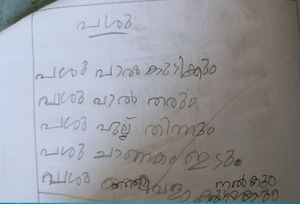 പശു
പശു പാൽ കുടിക്കും
പശു പാൽ തരും
പശു പുല്ല് തിന്നും
പശു ചാണകം ഇടും
പശു നൽകും